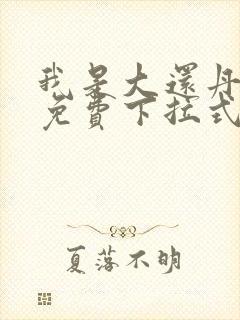 我是大還丹
免費下拉式
夏落不明